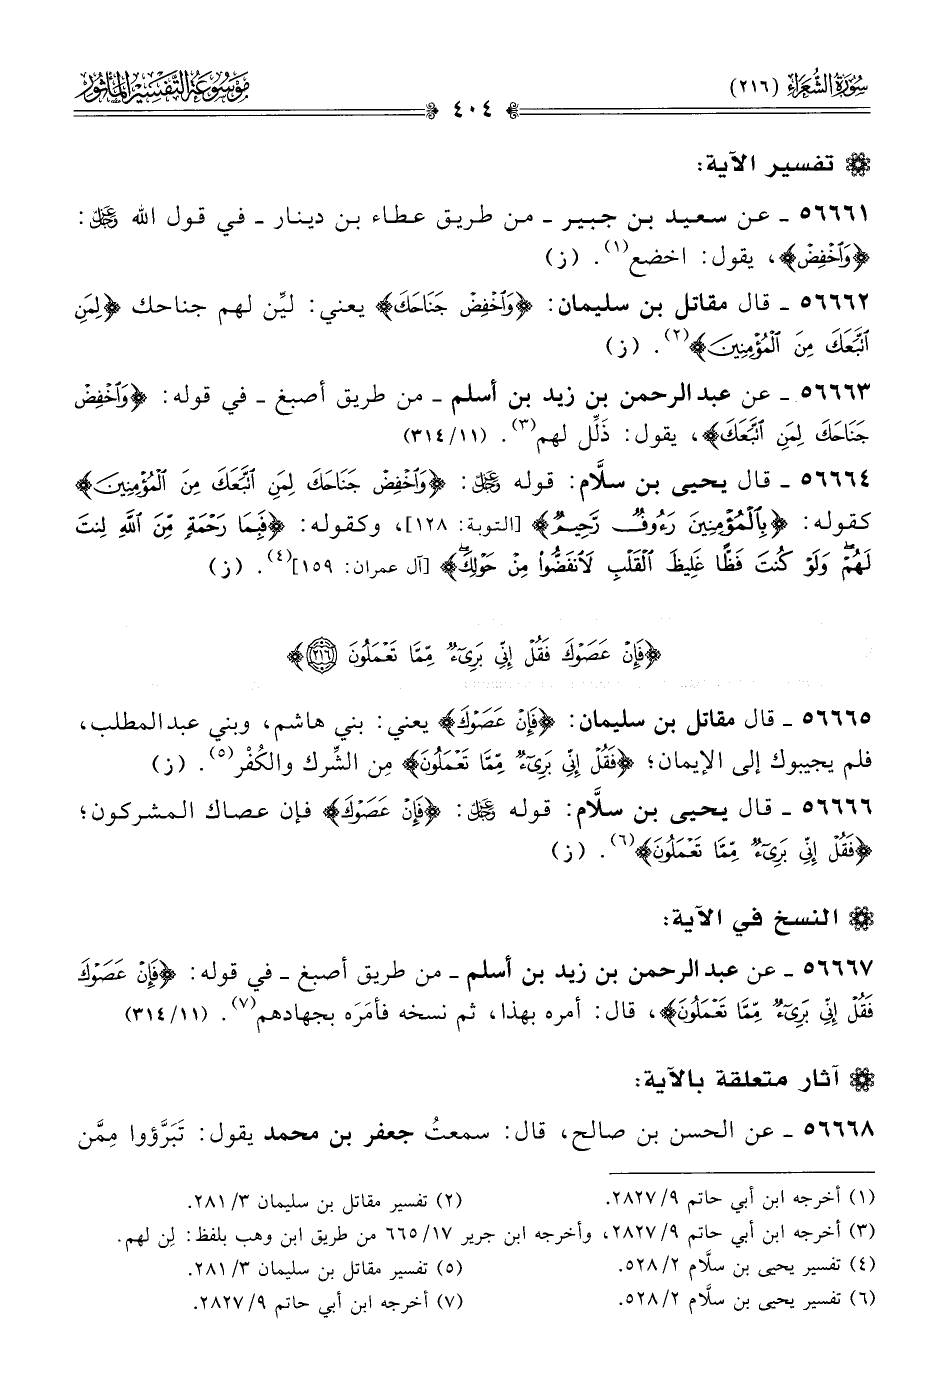 سُورَةُ الشُّعَرَاءِ (٢١٦)
موسوعة التفسير المأثور
٤٠٤
تفسير الآية:
٥٦٦٦١ ـ عن سعيد بن جبير ـ من طريق عطاء بن دينار ـ في قول الله ﷿:
﴿وَٱخۡفِضۡ﴾، يقول: اخضع(١). (ز)
٥٦٦٦٢ ـ قال مقاتل بن سليمان: ﴿وَٱخۡفِضۡ جَنَاحَكَ﴾ يعني: ليِّن لهم جناحك ﴿لِمَنِ
ٱتَّبَعَكَ مِنَ ٱلۡمُؤۡمِنِينَ﴾(٢). (ز)
٥٦٦٦٣ ـ عن عبد الرحمن بن زيد بن أسلم ـ من طريق أصبغ ـ في قوله: ﴿وَٱخۡفِضۡ
جَنَاحَكَ لِمَنِ ٱتَّبَعَكَ﴾، يقول: ذَلِّل لهم(٣). (٣١٤/١١)
٥٦٦٦٤ ـ قال يحيى بن سلَّام: قوله ﷿: ﴿وَٱخۡفِضۡ جَنَاحَكَ لِمَنِ ٱتَّبَعَكَ مِنَ ٱلۡمُؤۡمِنِينَ﴾
كقوله: ﴿بِٱلۡمُؤۡمِنِينَ رَءُوفٞ رَّحِيمٞ﴾ [التوبة: ١٢٨]، وكقوله: ﴿فَبِمَا رَحۡمَةٖ مِّنَ ٱللَّهِ لِنتَ
لَهُمۡۖ وَلَوۡ كُنتَ فَظًّا غَلِيظَ ٱلۡقَلۡبِ لَٱنفَضُّواْ مِنۡ حَوۡلِكَۖ﴾ [آل عمران: ١٥٩](٤). (ز)
﴿فَإِنۡ عَصَوۡكَ فَقُلۡ إِنِّي بَرِيٓءٞ مِّمَّا تَعۡمَلُونَ ٢١٦﴾
٥٦٦٦٥ ـ قال مقاتل بن سليمان: ﴿فَإِنۡ عَصَوۡكَ﴾ يعني: بني هاشم، وبني عبد المطلب،
فلم يجيبوك إلى الإيمان؛ ﴿فَقُلۡ إِنِّي بَرِيٓءٞ مِّمَّا تَعۡمَلُونَ﴾ مِن الشِّرك والكُفْر(٥). (ز)
٥٦٦٦٦ ـ قال يحيى بن سلَّام: قوله ﷿: ﴿فَإِنۡ عَصَوۡكَ﴾ فإن عصاك المشركون؛
﴿فَقُلۡ إِنِّي بَرِيٓءٞ مِّمَّا تَعۡمَلُونَ﴾(٦). (ز)
النسخ في الآية:
٥٦٦٦٧ ـ عن عبد الرحمن بن زيد بن أسلم ـ من طريق أصبغ ـ في قوله: ﴿فَإِنۡ عَصَوۡكَ
فَقُلۡ إِنِّي بَرِيٓءٞ مِّمَّا تَعۡمَلُونَ﴾، قال: أمره بهذا، ثم نسخه فأمَرَه بجهادهم(٧). (٣١٤/١١)
آثار متعلقة بالآية:
٥٦٦٦٨ ـ عن الحسن بن صالح، قال: سمعتُ جعفر بن محمد يقول: تَبَرَّؤوا مِمَّن
(١) أخرجه ابن أبي حاتم ٢٨٢٧/٩.
(٢) تفسير مقاتل بن سليمان ٢٨١/٣.
(٣) أخرجه ابن أبي حاتم ٢٨٢٧/٩، وأخرجه ابن جرير ٦٦٥/١٧ من طريق ابن وهب بلفظ: لِن لهم.
(٤) تفسير يحيى بن سلَّام ٥٢٨/٢.
(٥) تفسير مقاتل بن سليمان ٢٨١/٣.
(٦) تفسير يحيى بن سلَّام ٥٢٨/٢.
(٧) أخرجه ابن أبي حاتم ٢٨٢٧/٩.